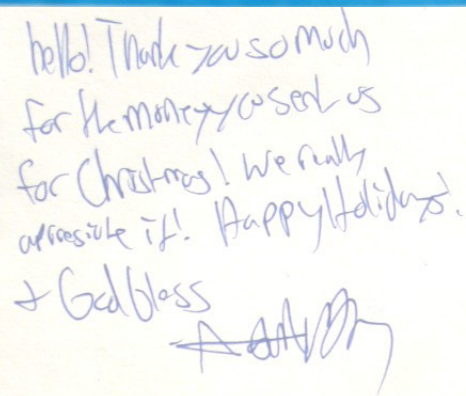 hello! Thank you so much
for the money you sent us
for Christmas! We really
appresicate it! Happy Holidays!
+ God Bless